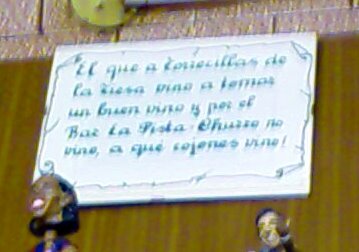 El que a Torrecillas de
la Tiesa vino a tomar
un buen vino y por el
Bar La Pista Churro no
vino, a qué cojones vino!